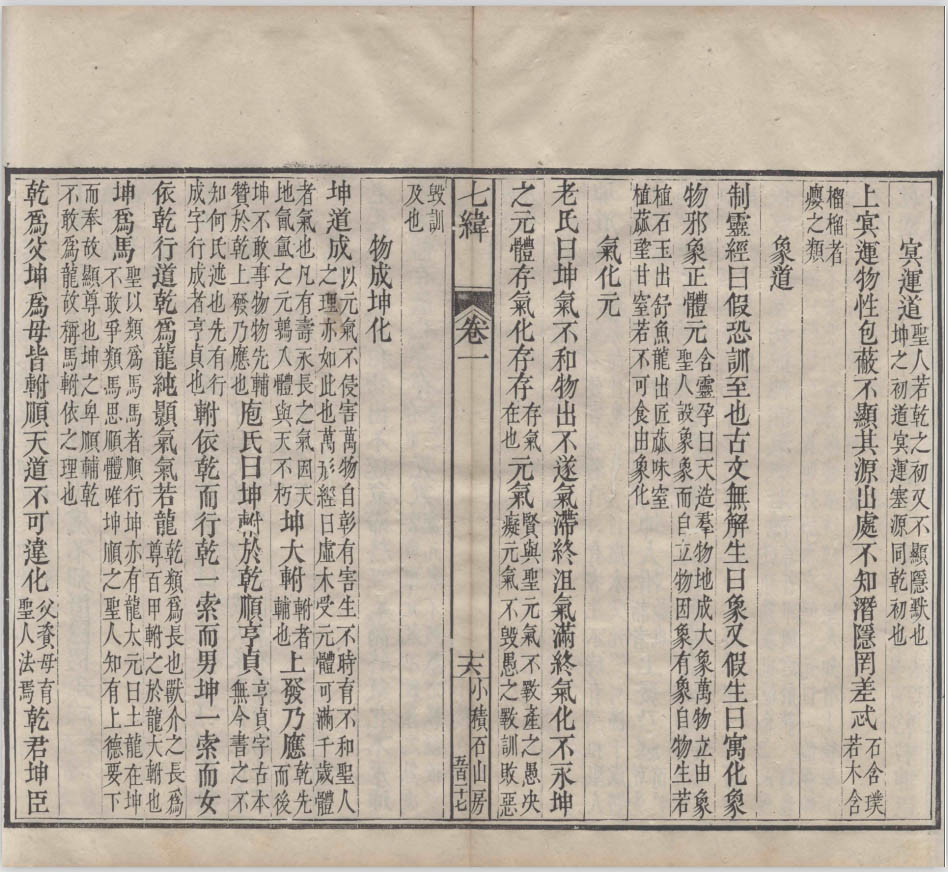 冥運道聖人若乾之初又不顯隱默也坤之初道冥運塞源同乾初也
上冥運物性包蔽不顯其源出處不知潛隱罔差忒石含璞若木含
榴榴者癭之類
象道
制靈經曰假恐訓至也古文無解生曰象又假生曰寓化象
物邪象正體元含靈孕曰天造羣物地成大象萬物立由象聖人設象象而自立物因象有象自物生若
植石玉出舒魚龍出匠蓏味室植蓏瑿甘窒若不可食由象化
氣化元
老氏曰坤氣不和物出不遂氣滯終沮氣滿終氣化不永坤
之元體存氣化存存存氣在也元氣賢與聖元氣不斁產之愚夬癡元氣不毀愚之斁訓敗惡
七緯 卷一 六 小積石山房 五百二十七
毀訓及也
物成坤化
坤道成以元氣不侵害萬物自彰有害生不時有不和聖人之理亦如此也萬形經曰虛木受元體可滿千歲體
者氣也凡有壽永長之氣因天地氤氳之元鶉入體與天不朽坤大軵軵者輔也上發乃應乾先而後
坤不敢事物物先輔贊於乾上發乃應也庖氏曰坤軵於乾順亨貞亨貞字古本無今書之不
知何氏逸也先有行成字行成者亨貞也軵依乾而行乾一索而男坤一索而女
依乾行道乾爲龍純顥氣氣若龍乾類爲長也獸介之長爲尊百甲軵之於龍大軵也
坤爲馬聖以類爲馬馬者順行坤亦有龍太元曰土龍在坤不敢爭類馬思順體唯坤順之聖人知有上德要下
而奉故顯尊也坤之卑順輔乾不敢爲龍故稱馬軵依之理也
乾爲父坤爲母皆軵順天道不可違化父養母育聖人法焉乾君坤臣